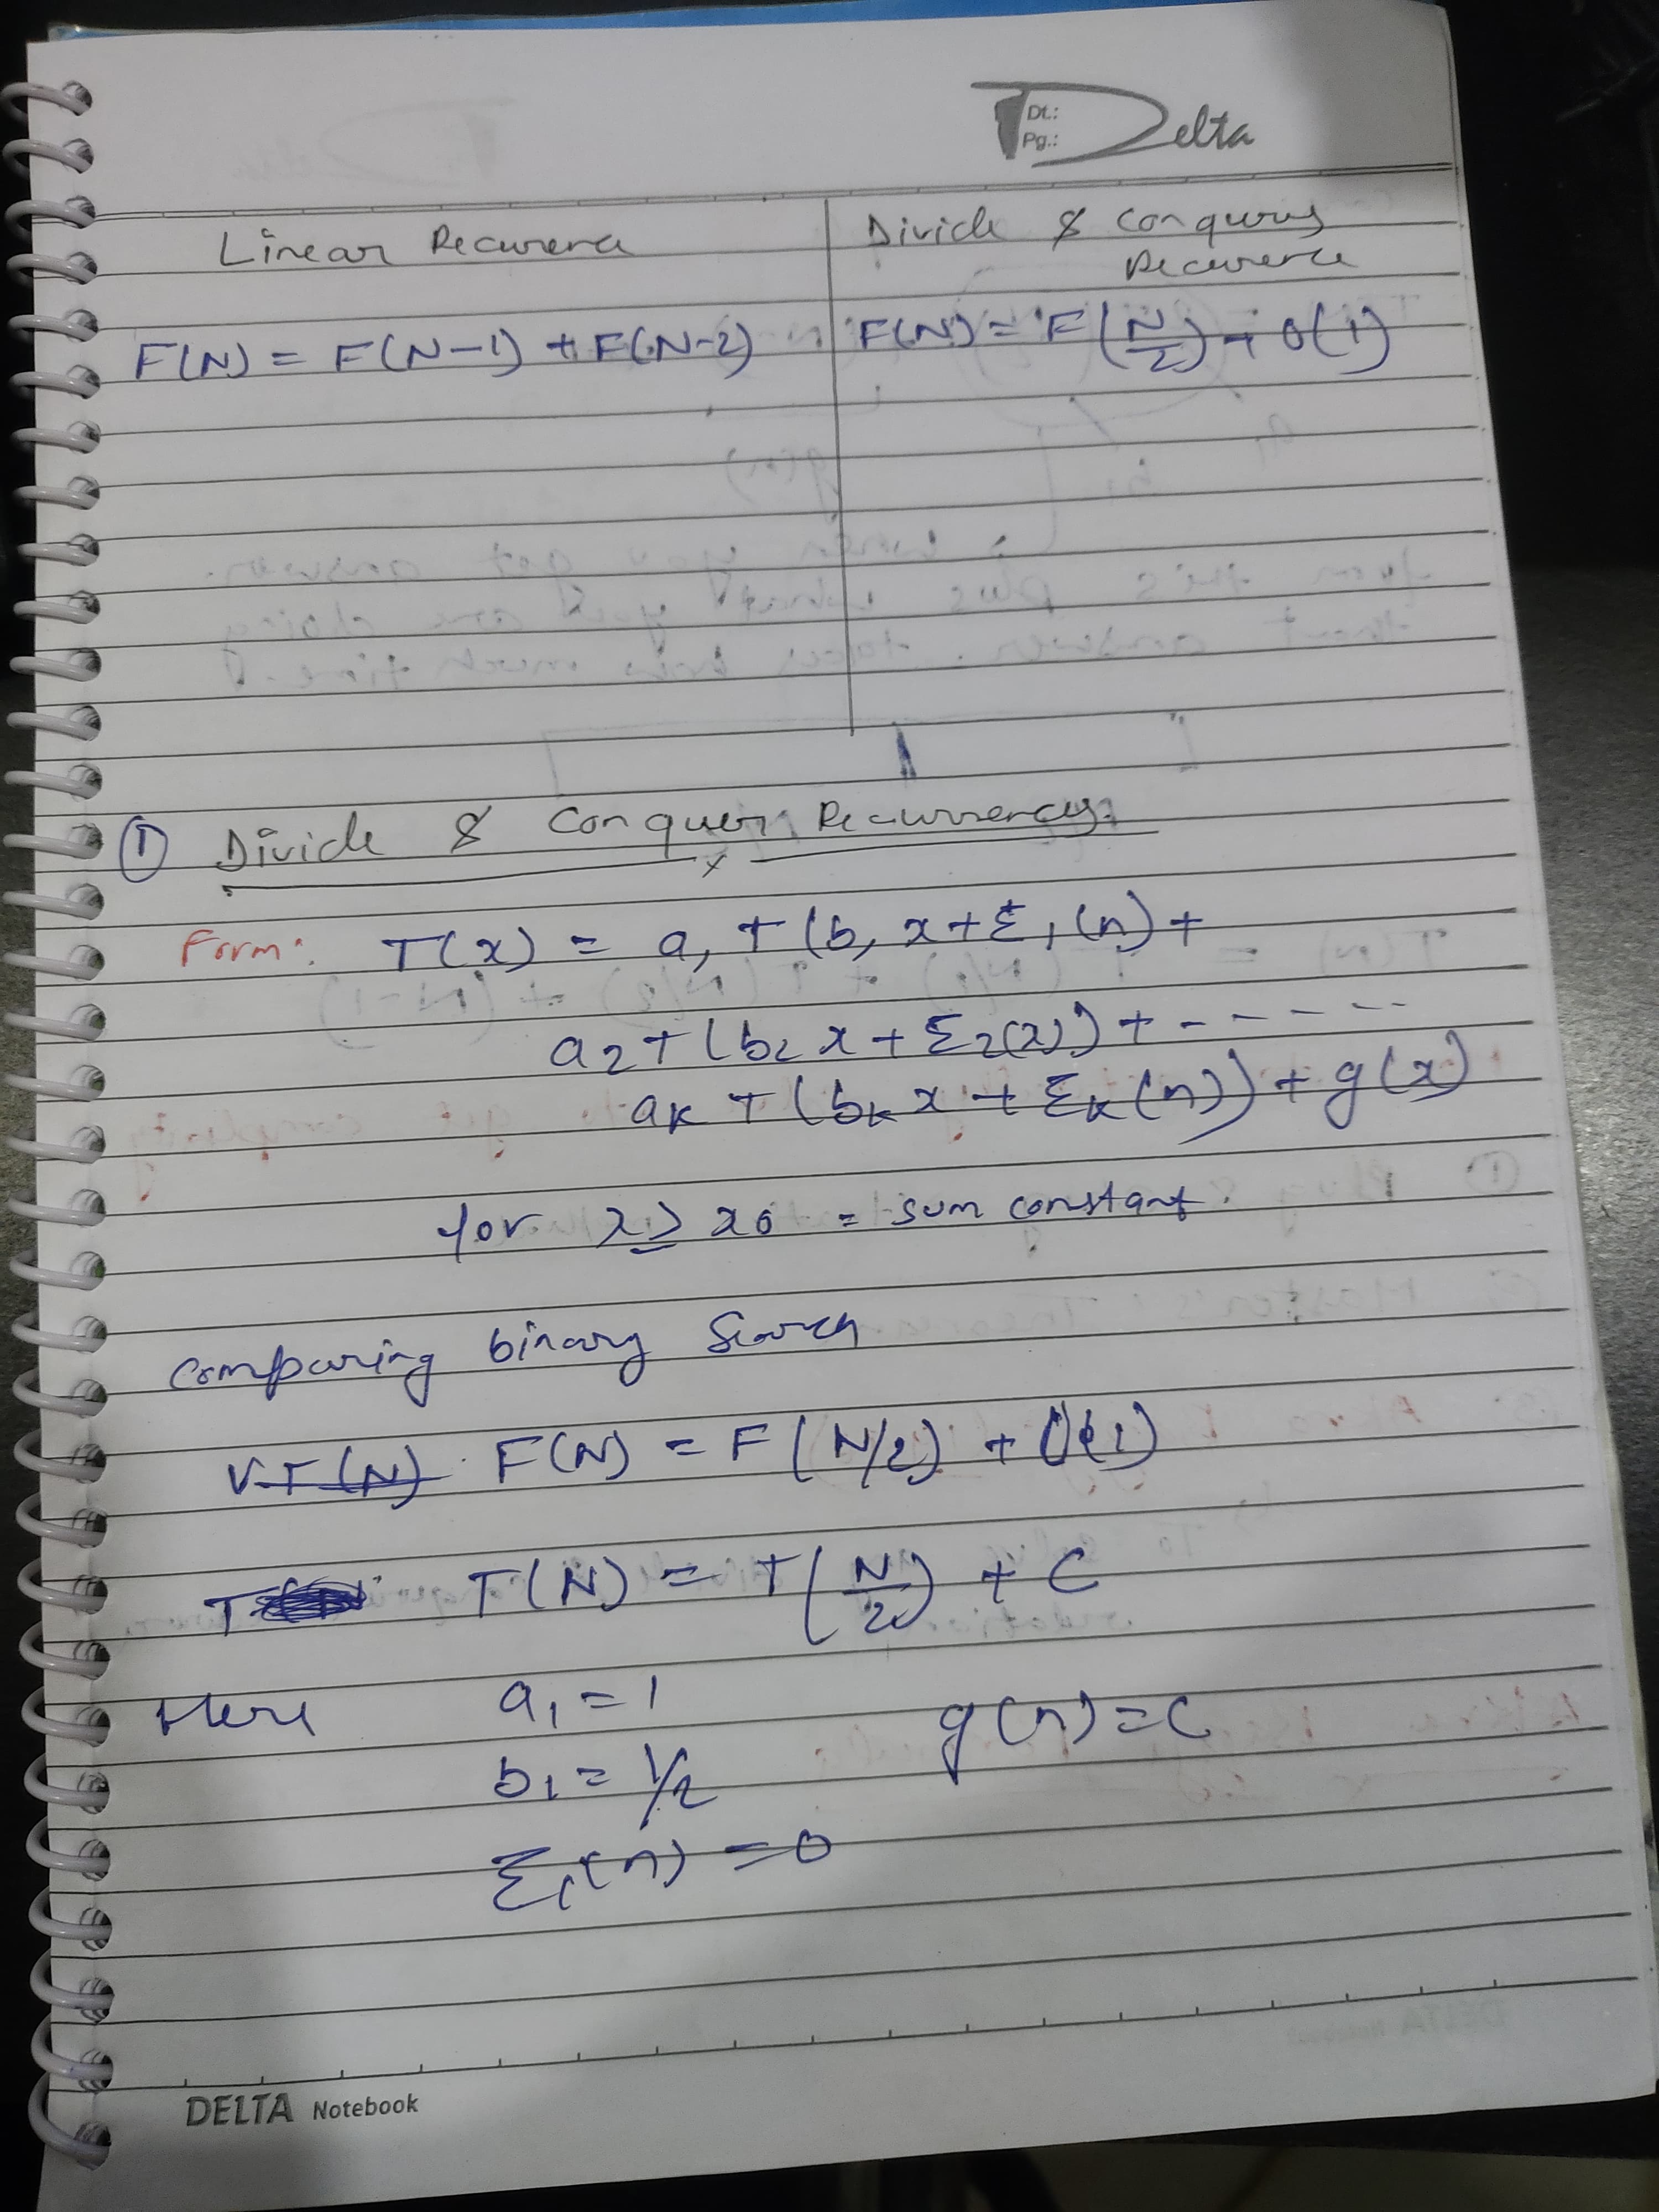 Dt.:
Pg.:
Delta
Linear Recurrence
Divide & Conquer
Recurrence
F(N) = F(N-1) + F(N-2)
F(N) = F(N/2) + O(1)
① Divide & Conquer Recurrences:
Form: T(x) = a₁ T(b₁ x + Ɛ₁(n) +
a₂ T(b₂ x + Ɛ₂(x)) + - - - - - -
aₖ T(bₖ x + Ɛₖ(n)) + g(x)
for x ≥ x₀ = sum constant.
Comparing binary Search
F(N) = F(N/2) + O(1)
T T(N) = T(N/2) + C
Here a₁ = 1 g(n) = C
b₁ = 1/2
Ɛ₁(n) = 0
DELTA Notebook